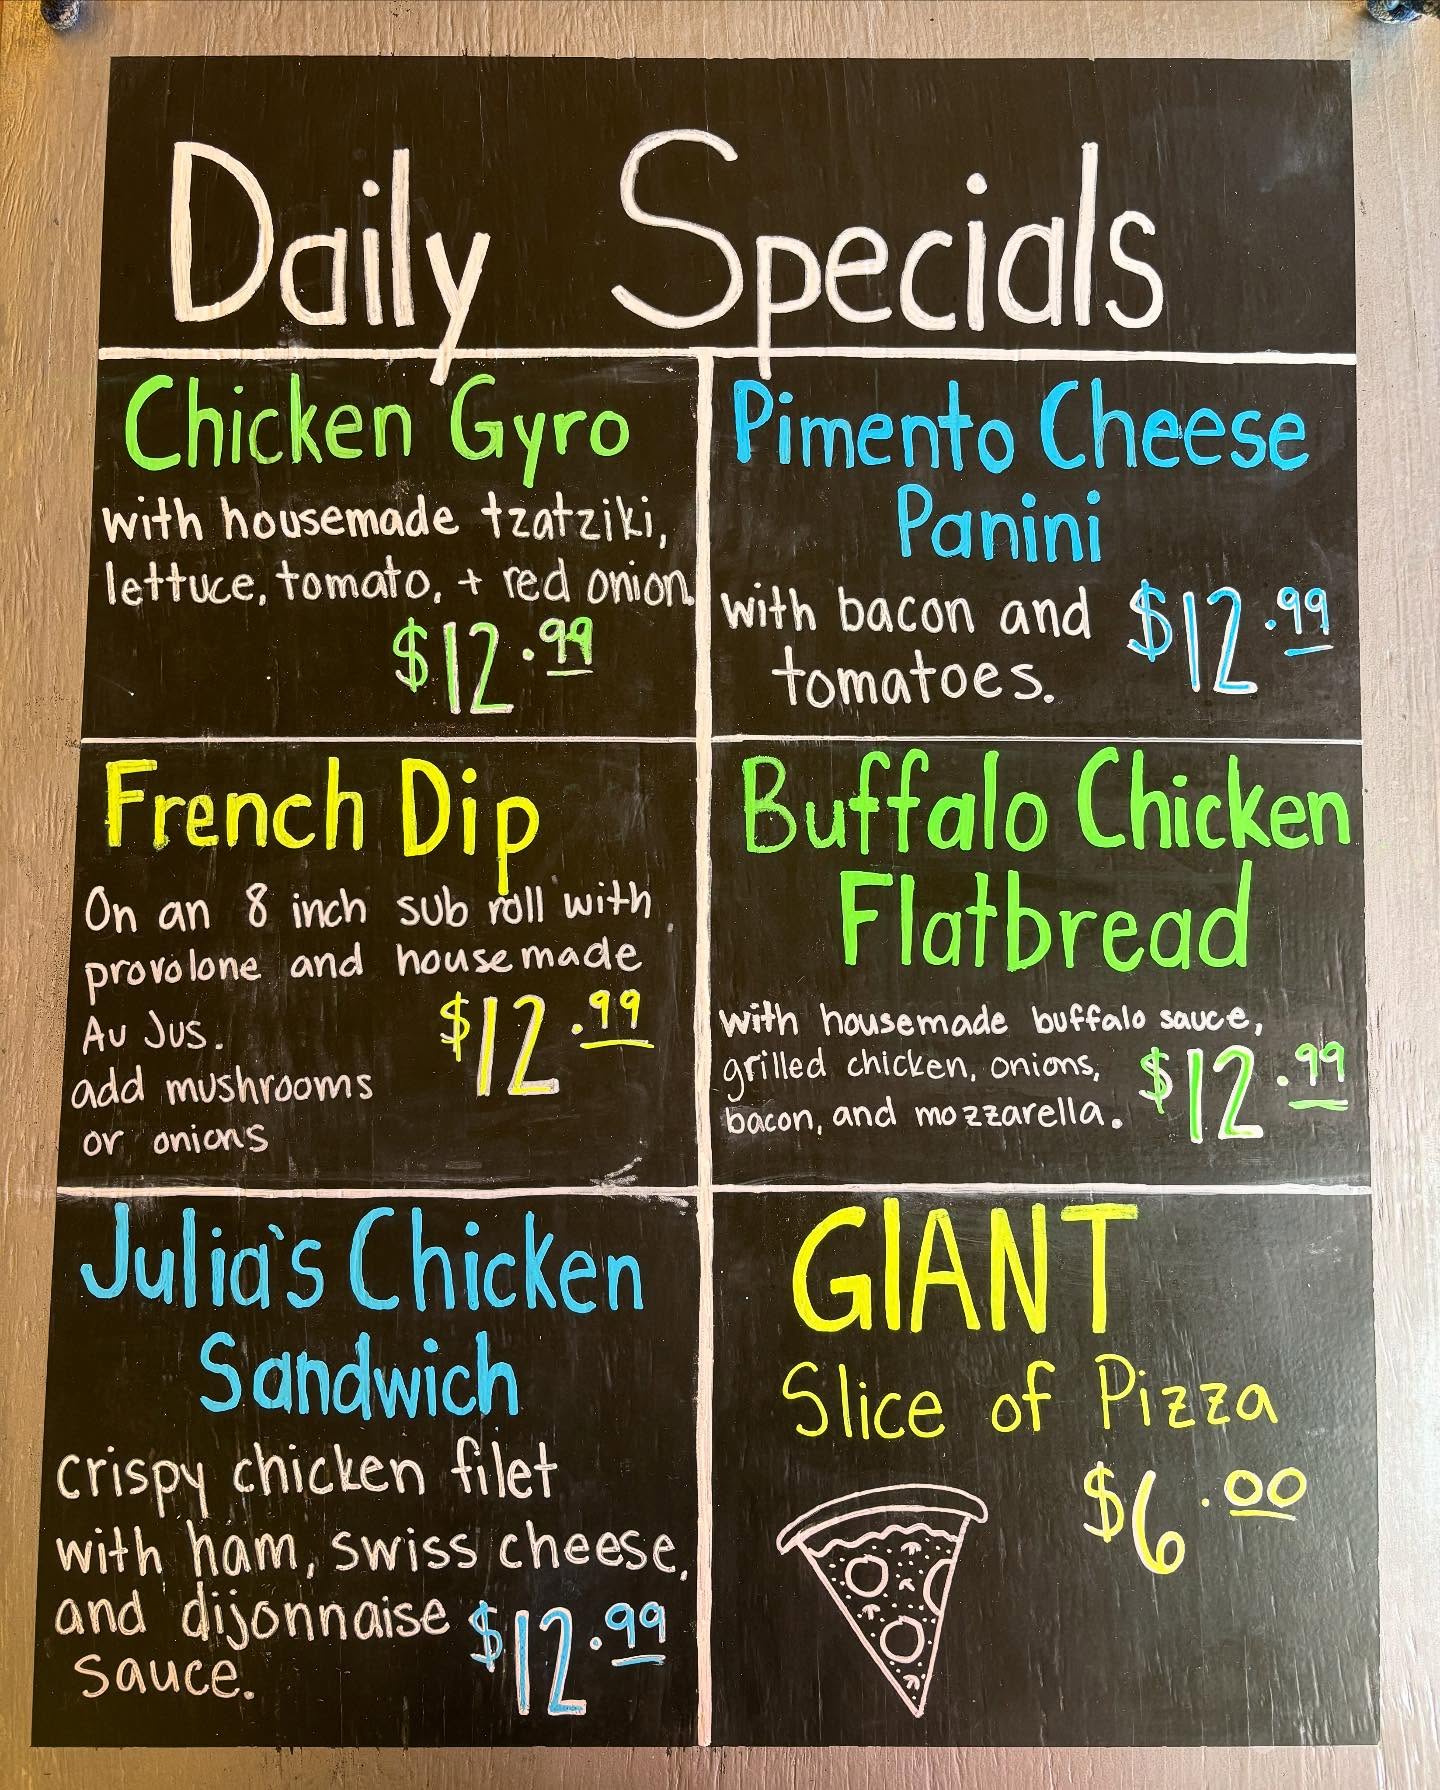 Daily Specials
Chicken Gyro
with housemade tzatziki,
lettuce, tomato, + red onion.
$12.99
Pimento Cheese
Panini
with bacon and
tomatoes.
$12.99
French Dip
On an 8 inch sub roll with
provolone and housemade
Au Jus.
add mushrooms
or onions
$12.99
Buffalo Chicken
Flatbread
with housemade buffalo sauce,
grilled chicken, onions,
bacon, and mozzarella.
$12.99
Julia's Chicken
Sandwich
crispy chicken filet
with ham, swiss cheese,
and dijonnaise
sauce.
$12.99
GIANT
Slice of Pizza
$6.00